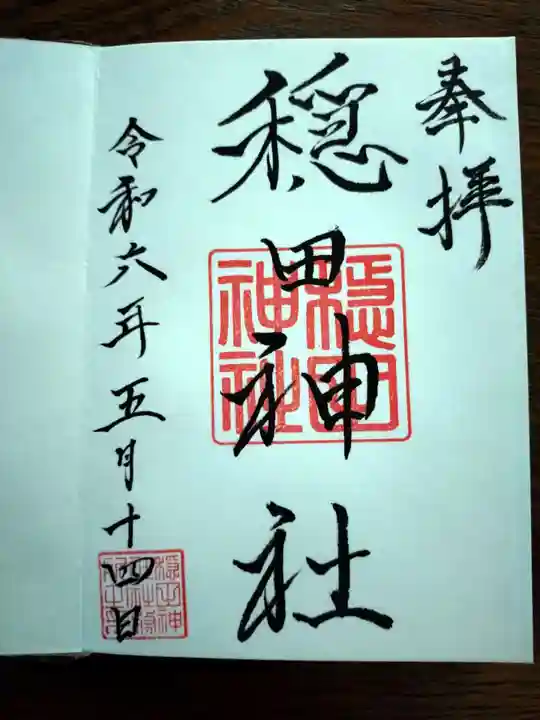 奉拝
穏田神社
穏田
神社
令和六年五月十四日